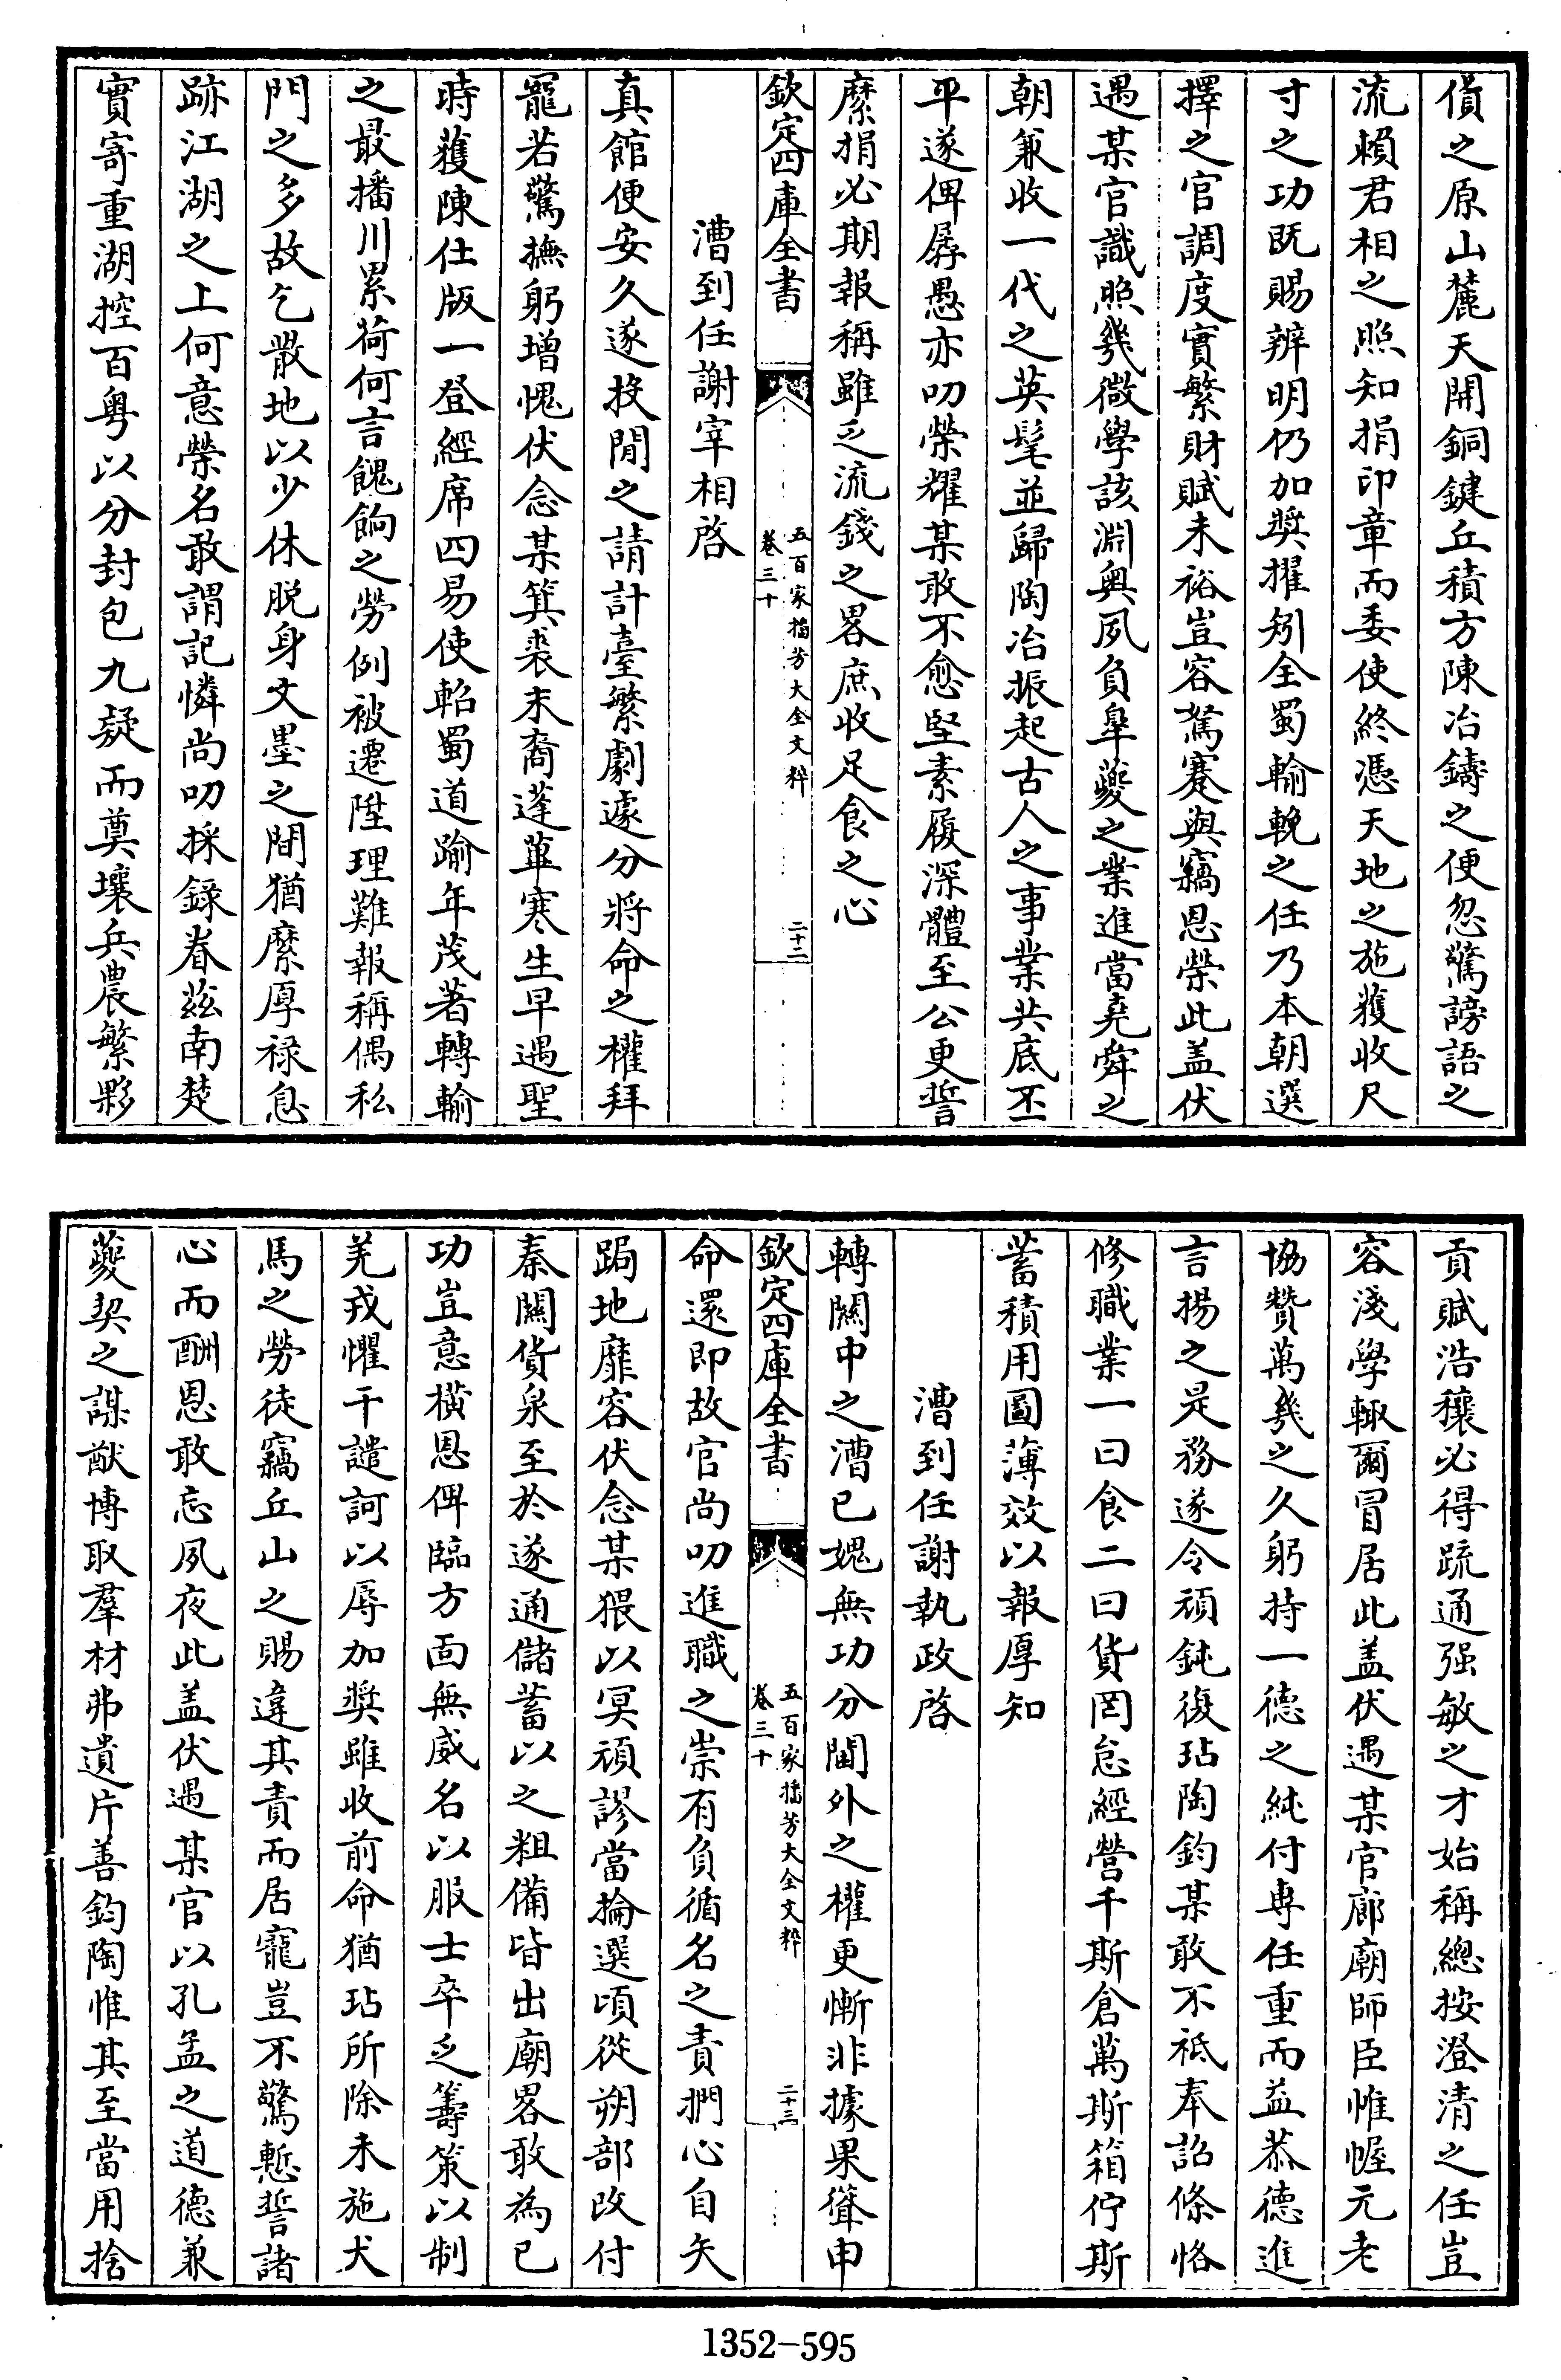 貨之原山麓天開銅鍵丘積方陳冶鑄之便忽驚謗語之
流賴君相之照知捐印章而委使終憑天地之施獲收尺
寸之功既賜辨明仍加奬擢矧全蜀輸輓之任乃本朝選
擇之官調度實繁財賦未裕豈容駑蹇與竊恩榮此盖伏
遇某官識照幾微學該淵奥夙負臯夔之業進當堯舜之
朝兼收一代之英髦並歸陶冶振起古人之事業共底丕
平遂俾孱愚亦叨榮耀某敢不愈堅素履深體至公更誓
縻捐必期報稱雖乏流錢之畧庶收足食之心
欽定四庫全書
五百家播芳大全文粹
卷三十
二十二
漕到任謝宰相啓
真館便安久遂投閒之請計臺繁劇遽分將命之權拜
寵若驚撫躬增愧伏念某箕裘末裔蓬蓽寒生早遇聖
時獲陳仕版一登經席四易使軺蜀道踰年茂著轉輸
之最播川累荷何言餽餉之勞例被遷陞理難報稱偶私
門之多故乞散地以少休脱身文墨之間猶縻厚禄息
跡江湖之上何意榮名敢謂記憐尚叨採録眷兹南楚
實寄重湖控百粤以分封包九疑而奠壤兵農繁夥
貢賦浩穰必得疏通强敏之才始稱總按澄清之任豈
容淺學輙爾冒居此盖伏遇某官廊廟師臣帷幄元老
協贊萬幾之久躬持一德之純付専任重而益恭德進
言揚之是務遂令頑鈍復玷陶鈞某敢不祗奉詔條恪
修職業一曰食二曰貨罔怠經營千斯倉萬斯箱佇斯
蓄積用圖薄效以報厚知
漕到任謝執政啓
轉闗中之漕已媿無功分閫外之權更慚非據果聳申
欽定四庫全書
五百家播芳大全文粹
卷三十
二十三
命還即故官尚叨進職之崇有負循名之責捫心自矢
跼地靡容伏念某猥以冥頑謬當掄選頃從朔部改付
秦闗貨泉至於遂通儲蓄以之粗備皆出廟畧敢為已
功豈意横恩俾臨方面無威名以服士卒乏籌策以制
羌戎懼干譴訶以辱加奬雖收前命猶玷所除未施犬
馬之勞徒竊丘山之賜違其責而居寵豈不驚慙誓諸
心而酬恩敢忘夙夜此盖伏遇某官以孔孟之道德兼
夔契之謀猷博取羣材弗遺片善鈞陶惟其至當用捨
1352-595